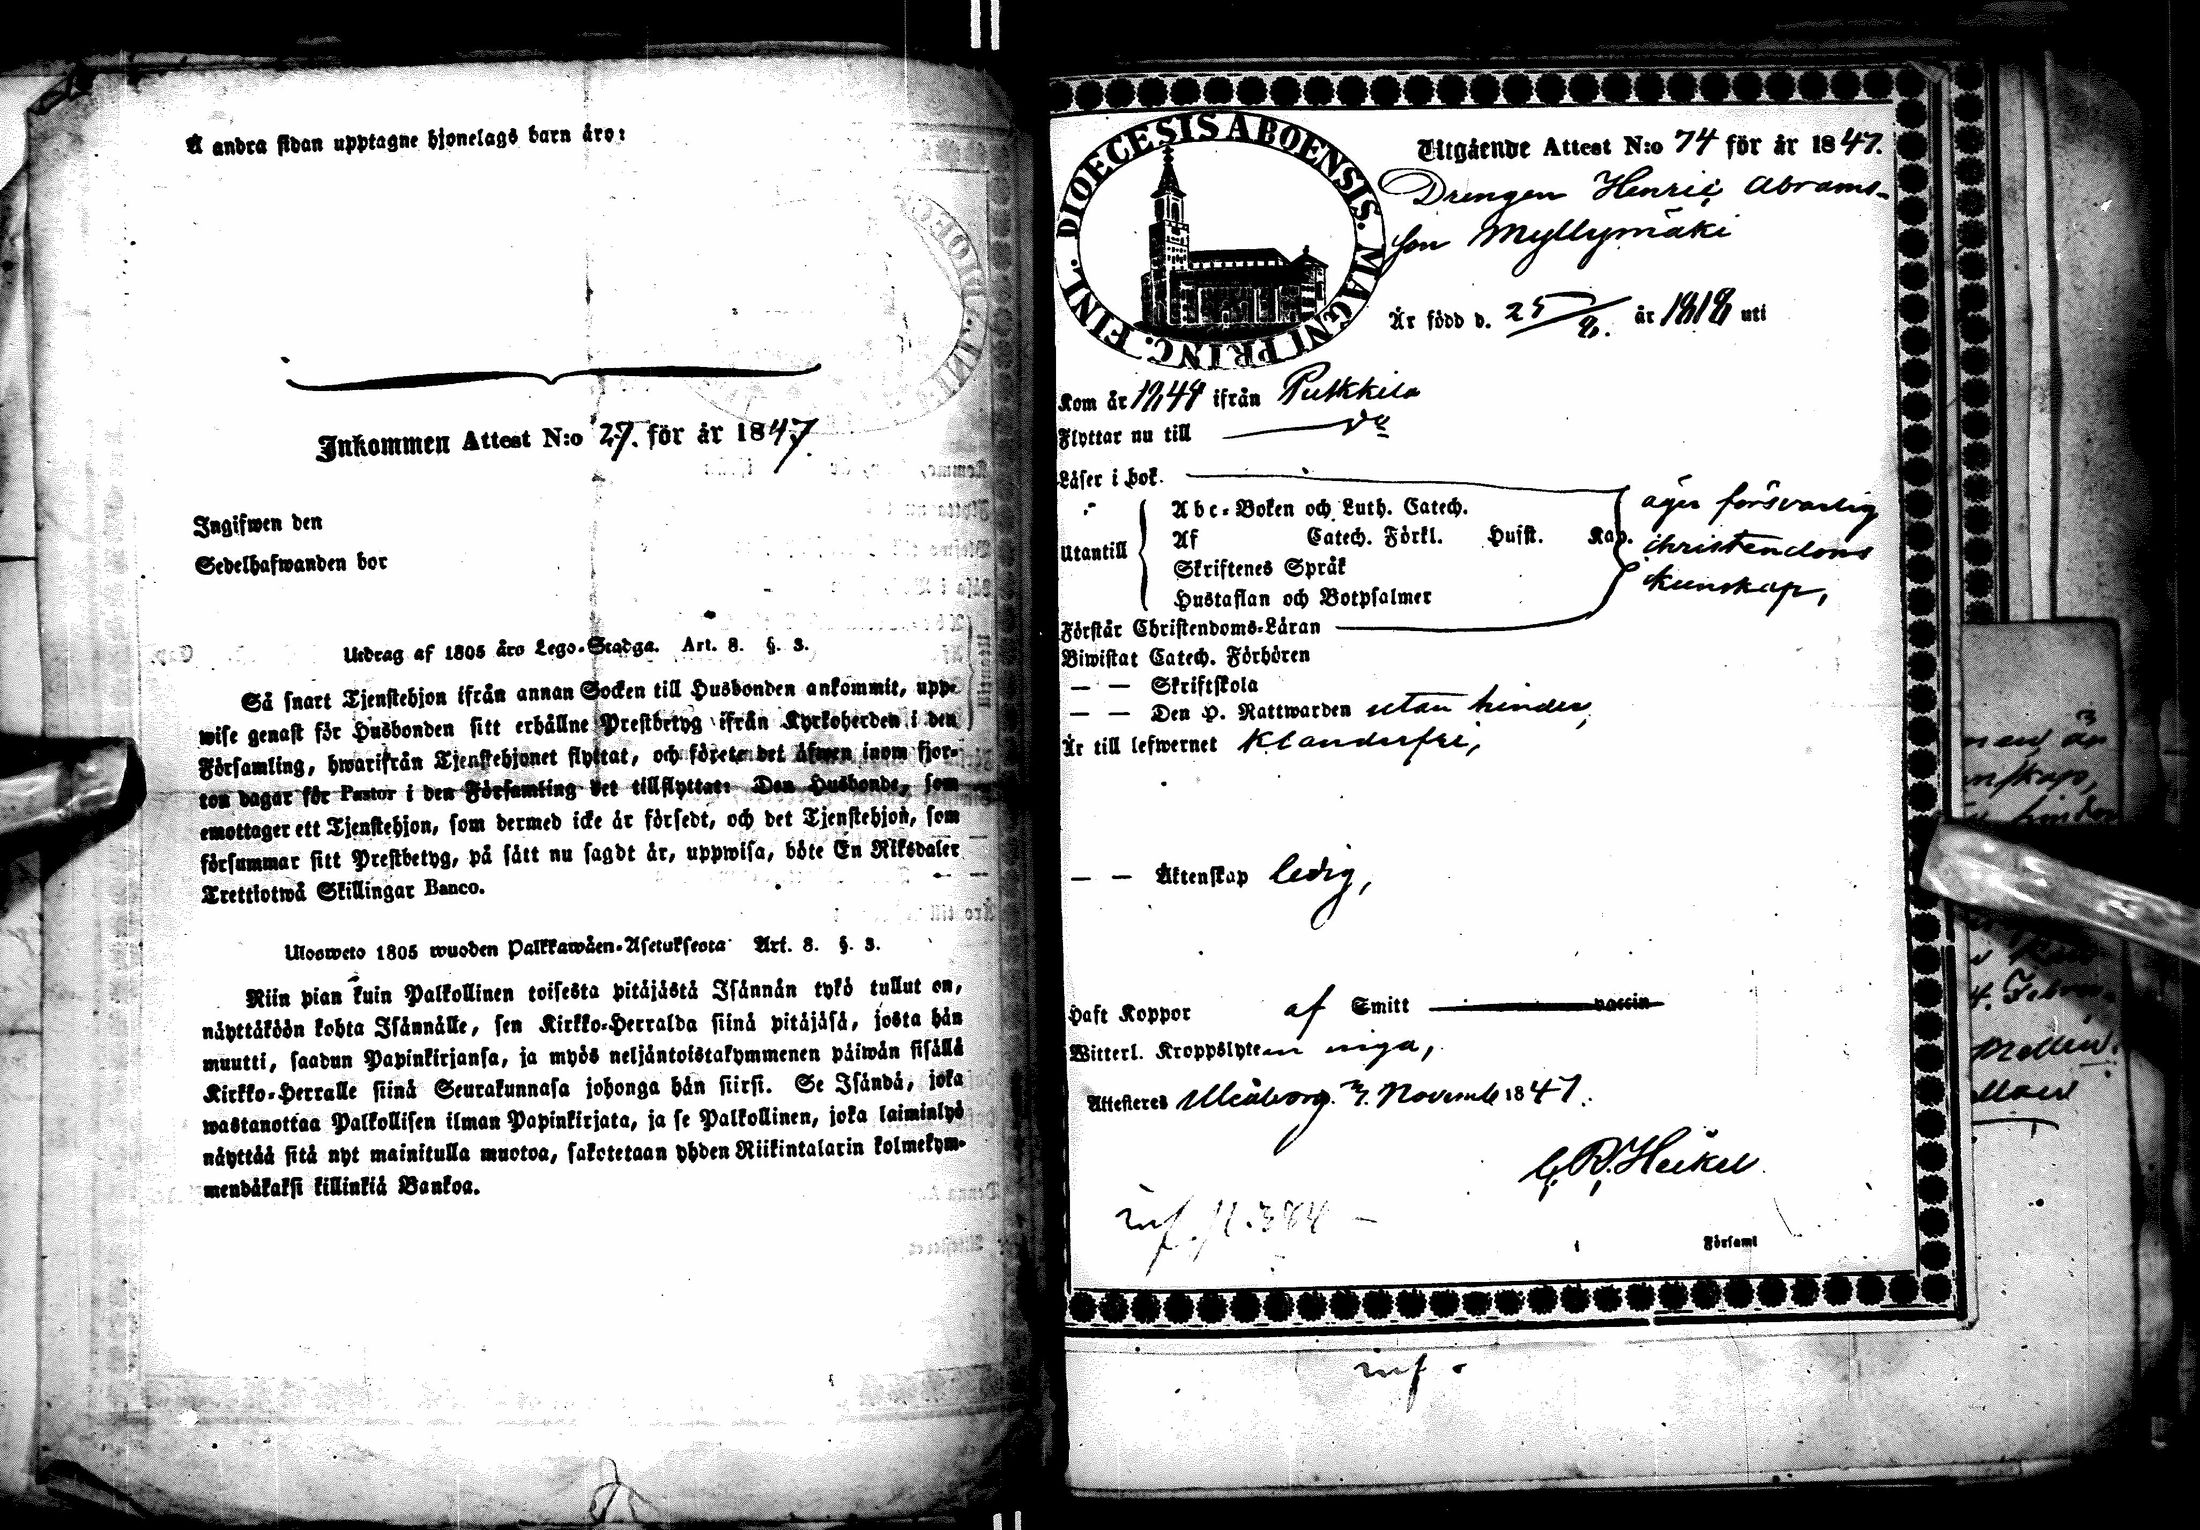 Å andra sidan upptagne hjonelags barn äro:
Inkommen Attest N:o 27. för år 1847.
Ingifwen den
Sedelhafwanden bor
Utdrag af 1805 års Lego-Stadga. Art. 8. §. 3.
Så snart Tjenstehjon ifrån annan Socken till Husbonden ankommit, uppe
wise genast för Husbonden sitt erhållne Prestbetyg ifrån Kyrkoherden i den
Församling, hwarifrån Tjenstehjonet flyttat, och förete det äfwen inom fjor-
ton dagar för Pastor i den Församling det tillflyttat: Den Husbonde, som
emottager ett Tjenstehjon, som dermed icke är försedt, och det Tjenstehjon, som
försummar sitt Prestbetyg, på sätt nu sagdt är, uppwisa, böte En Riksdaler
Trettiotwå Skillingar Banco.
Ulosweto 1805 wuoden Palkkawäen-Asetuksesta Art. 8. §. 3.
Niin pian kuin Palkollinen toisesta pitäjästä Isännän tykö tullut on,
näyttäköön kohta Isännälle, sen Kirkko-Herralda siinä pitäjäsä, josta hän
muutti, saadun Papinkirjansa, ja myös neljäntoistakymmenen päiwän sisällä
Kirkko-Herralle siinä Seurakunnasa johonga hän siirsi. Se Isändä, joka
wastanottaa Palkollisen ilman Papinkirjata, ja se Palkollinen, joka laiminlyö
näyttää sitä nyt mainitulla muotoa, sakotetaan yhden Riikintalarin kolmekym-
mendäkaksi killinkiä Bankoa.
DIOECESIS ABOENSIS. MAGNI PRINC. FINL.
Utgående Attest N:o 74 för år 1847.
Drengen Henric Abrams-
son Myllymäki
Är född d. 25/8. år 1818 uti
Kom år 1844 ifrån Pulkkila
Flyttar nu till do
Läser i bok.
Utantill
Abc-Boken och Luth. Catech.
Af Catech. Förkl. Husst. Kap.
Skriftenes Språk
Hustaflan och Botpsalmer
äger försvarlig
christendoms
kunskap,
Förstår Christendoms-Läran
Biwistat Catech. Förhören
— — Skriftskola
— — Den H. Nattwarden utan hinder,
Är till lefwernet klanderfri,
— — Äktenskap ledig,
Haft Koppor af Smitt vaccin
Witterl. Kroppslyten inga,
Attesteras Uleåborg. November 1847.
Heikel
inf. 384 —
Församl
inf.